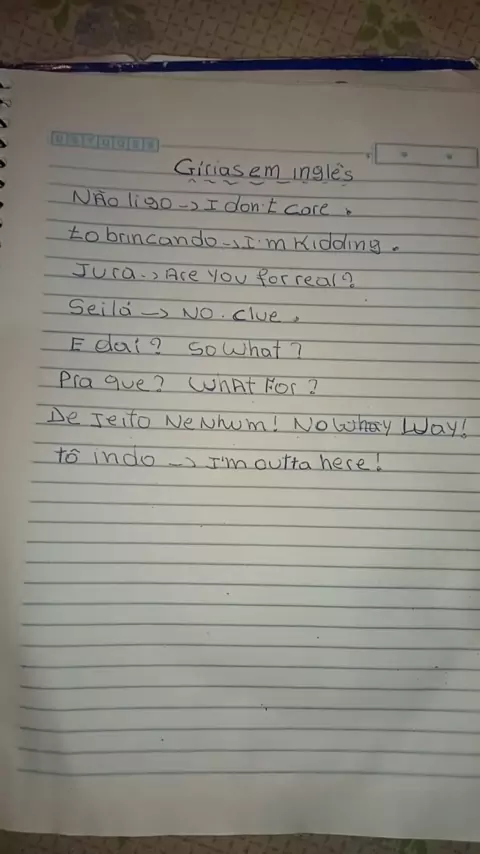 Gírias em inglês
Não ligo -> I don't care.
to brincando -> I'm Kidding.
Jura -> Are You for real?
Sei lá -> NO. clue.
E daí? So What?
Pra que? WhAt For?
De Jeito NeNhum! No Way!
tô indo -> I'm outta here!